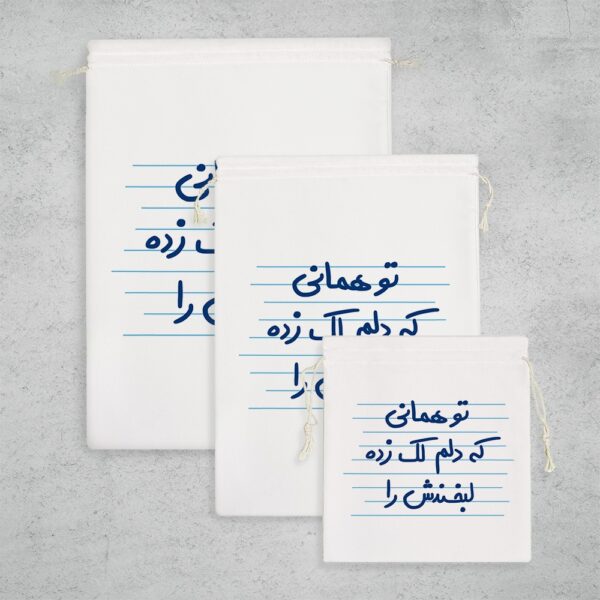 زده
را
تو همانی
که دلم لک زده
را
تو همانی
که دلم لک زده
لبخندش را